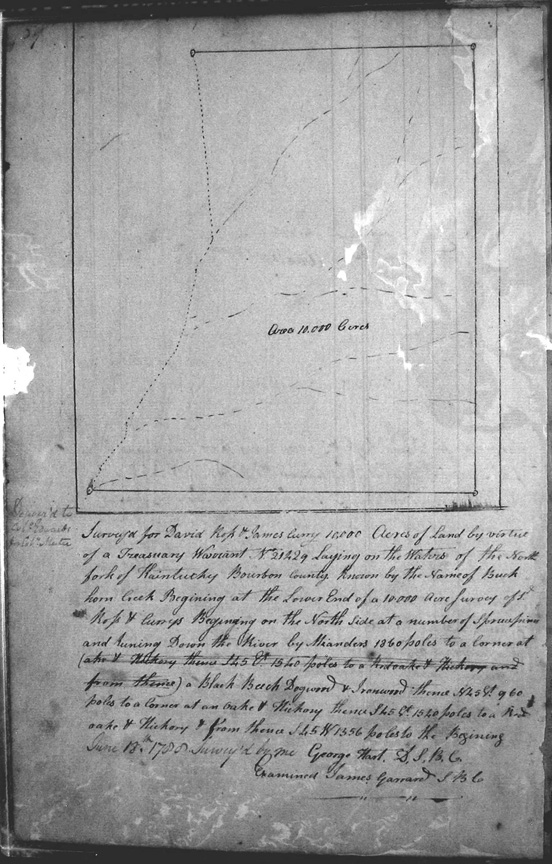 Area 10.000 Acres
Deliver'd to
Survey'd for David Ross & James Curry 10,000 Acres of Land by virtue
of a Treasuary Warrant No 21429 Laying on the Waters of the North
fork of Kainluckey Bourbon County Known by the Name of Buck
horn Creek Begining at the Lower End of a 10.000 Acre Survey of sd
Ross & Currys Begining on the North Side at a number of
and runing Down the River by Meanders 1360 poles to a Corner at
(oake & Hickory thence S45 Et 1540 poles to a Red oake & Hickory and
from thence) a Black Beech Dogwood & Ironwood thence N45 Et 960
poles to a Corner at an oake & Hickory thence S45 Et 1540 poles to a Red
oake & Hickory & from thence S45 W 1556 poles to the Begining
June 18th Survey'd by me George Hart. D.S.B.C.
Examined James Garrard S B C